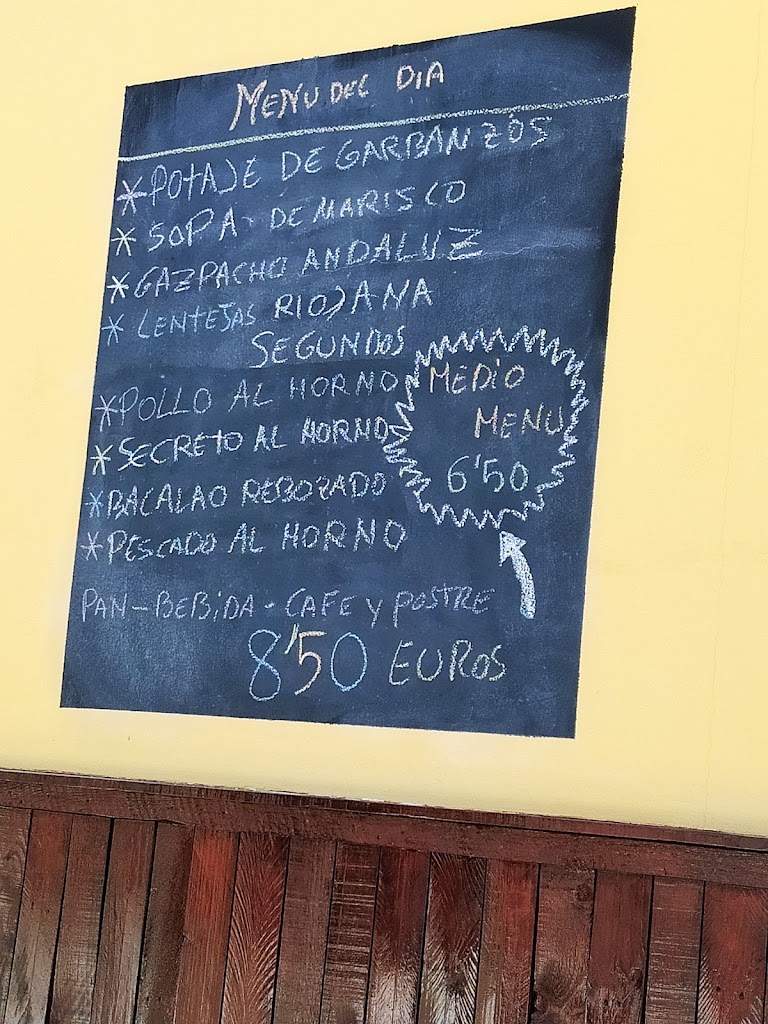 MENU DEL DIA
* POTAJE DE GARBANZOS
* SOPA DE MARISCO
* GAZPACHO ANDALUZ
* LENTEJAS RIOJANA
SEGUNDOS
* POLLO AL HORNO
* SECRETO AL HORNO
* BACALAO REBOZADO
* PESCADO AL HORNO
MEDIO
MENU
6'50
PAN - BEBiDA - CAFE y POSTRE
8'50 EUROS